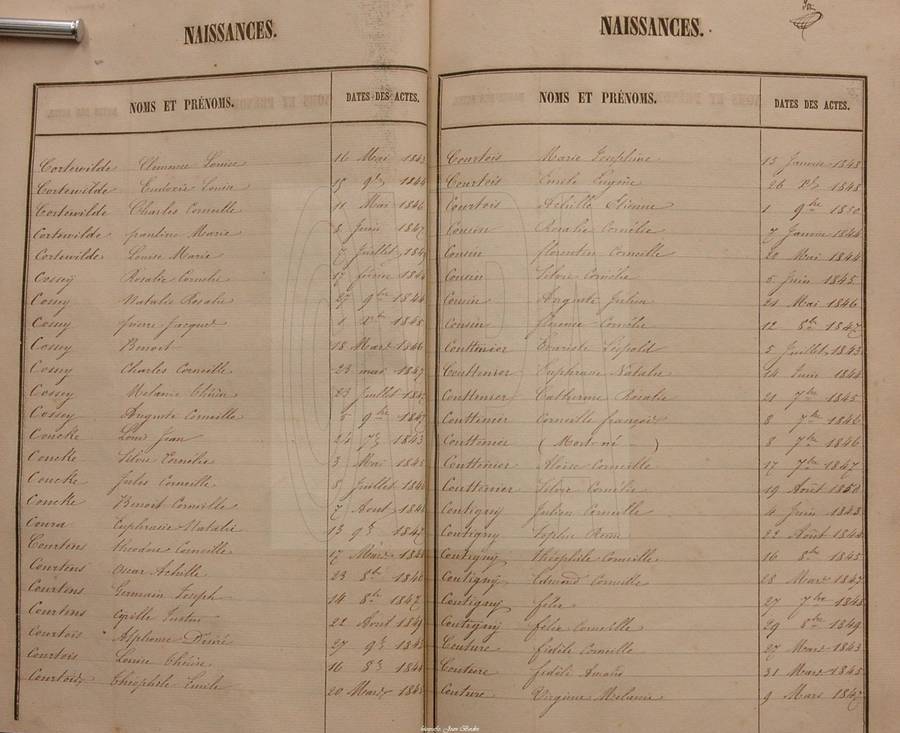 NAISSANCES.
NOMS ET PRÉNOMS. DATES DES ACTES.
Cortewilde Clemence Louise 16 Mai
Cortewilde Eudoxie Louise 15 9bre 1844
Cortewilde Charles Corneille 11 Mai 1846
Cortewilde pauline Marie 8 Juin 1847
Cortewilde Louise Marie 7 Juillet
Cossey Rosalie Cornelie 17 fevrier
Cossey Natalie Rosalie 27 9bre 1844
Cossey pierre Jacques 1 1845
Cossey Benoit 18 Mars 1846
Cossey Charles Corneille 23 mai 1847
Cossey Melanie Thérèse 23 Juillet
Cossey Auguste Corneille 5 9bre
Coucke Louis Jean 24 1843
Coucke Silvie Cornélie 3 Mai 1845
Coucke Jules Corneille 8 Juillet
Coucke Benoit Corneille 7 Aout
Coura Euphrasie Natalie 13
Courtens Théodore Corneille 17 Mars
Courtens Oscar Achille 23 8bre
Courtens Germain Joseph 14 8bre 1847
Courtens Cyrille Justin 22 Aout
Courtois Alphonse Désiré 27
Courtois Louise Thérèse 16
Courtois Théophile Emile 20 Mars
NAISSANCES.
NOMS ET PRÉNOMS. DATES DES ACTES.
Courtois Marie Josephine 15 Janvier
Courtois Emile Eugène 26 1848
Courtois Achille Etienne 1 9bre 1850
Cousin Rosalie Cornélie 7 Janvier 1844
Cousin florentin Corneille 20 Mai 1844
Cousin Silvie Cornélie 5 Juin 1845
Cousin Auguste Julien 21 Mai 1846
Cousin florence Cornélie 12 8bre 1847
Couttenier Evariste Léopold 5 Juillet 1843
Couttenier Euphrasie Natalie 14 Juin 1844
Couttenier Catherine Rosalie 21 7bre 1845
Couttenier Corneille françois 8 7bre 1846
Couttenier (Mort-né) 8 7bre 1846
Couttenier Aloïse Corneille 17 7bre 1847
Couttenier Silvie Cornélie 19 Août 1850
Coutigny Julien Corneille 4 Juin 1843
Coutigny Sophie 22 Août
Coutigny théophile Corneille 16 8bre 1845
Coutigny Edmond Corneille 28 Mars 1847
Coutigny félix 27 7bre 1848
Coutigny félix Corneille 29 8bre 1849
Couture fidèle Corneille 27 Mars 1843
Couture fidèle Amand 31 Mars 1845
Couture Virginie Mélanie 9 Mars 1847